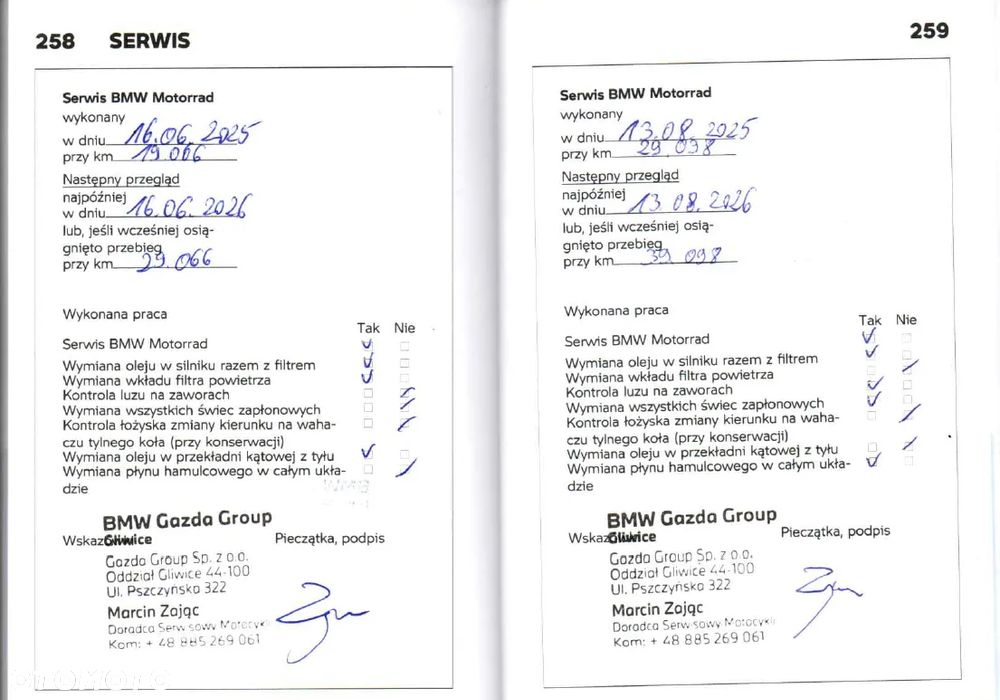 258 SERWIS
Serwis BMW Motorrad
wykonany
w dniu 16.06.2025
przy km 19 066
Następny przegląd
najpóźniej
w dniu 16.06.2026
lub, jeśli wcześniej osią-
gnięto przebieg
przy km 29.066
Wykonana praca
Tak Nie
Serwis BMW Motorrad
Wymiana oleju w silniku razem z filtrem
Wymiana wkładu filtra powietrza
Kontrola luzu na zaworach
Wymiana wszystkich świec zapłonowych
Kontrola łożyska zmiany kierunku na waha-
czu tylnego koła (przy konserwacji)
Wymiana oleju w przekładni kątowej z tyłu
Wymiana płynu hamulcowego w całym ukła-
dzie
BMW Gazda Group
Gliwice
Pieczątka, podpis
Gazda Group Sp. z o.o.
Oddział Gliwice 44-100
Ul. Pszczyńska 322
Marcin Zając
Doradca Serwisowy Motocykli
Kom: + 48 885 269 061
259
Serwis BMW Motorrad
wykonany
w dniu 13.08.2025
przy km 29 098
Następny przegląd
najpóźniej
w dniu 13.08.2026
lub, jeśli wcześniej osią-
gnięto przebieg
przy km 39 098
Wykonana praca
Tak Nie
Serwis BMW Motorrad
Wymiana oleju w silniku razem z filtrem
Wymiana wkładu filtra powietrza
Kontrola luzu na zaworach
Wymiana wszystkich świec zapłonowych
Kontrola łożyska zmiany kierunku na waha-
czu tylnego koła (przy konserwacji)
Wymiana oleju w przekładni kątowej z tyłu
Wymiana płynu hamulcowego w całym ukła-
dzie
BMW Gazda Group
Gliwice
Pieczątka, podpis
Gazda Group Sp. z o.o.
Oddział Gliwice 44-100
Ul. Pszczyńska 322
Marcin Zając
Doradca Serwisowy Motocykli
Kom: + 48 885 269 061